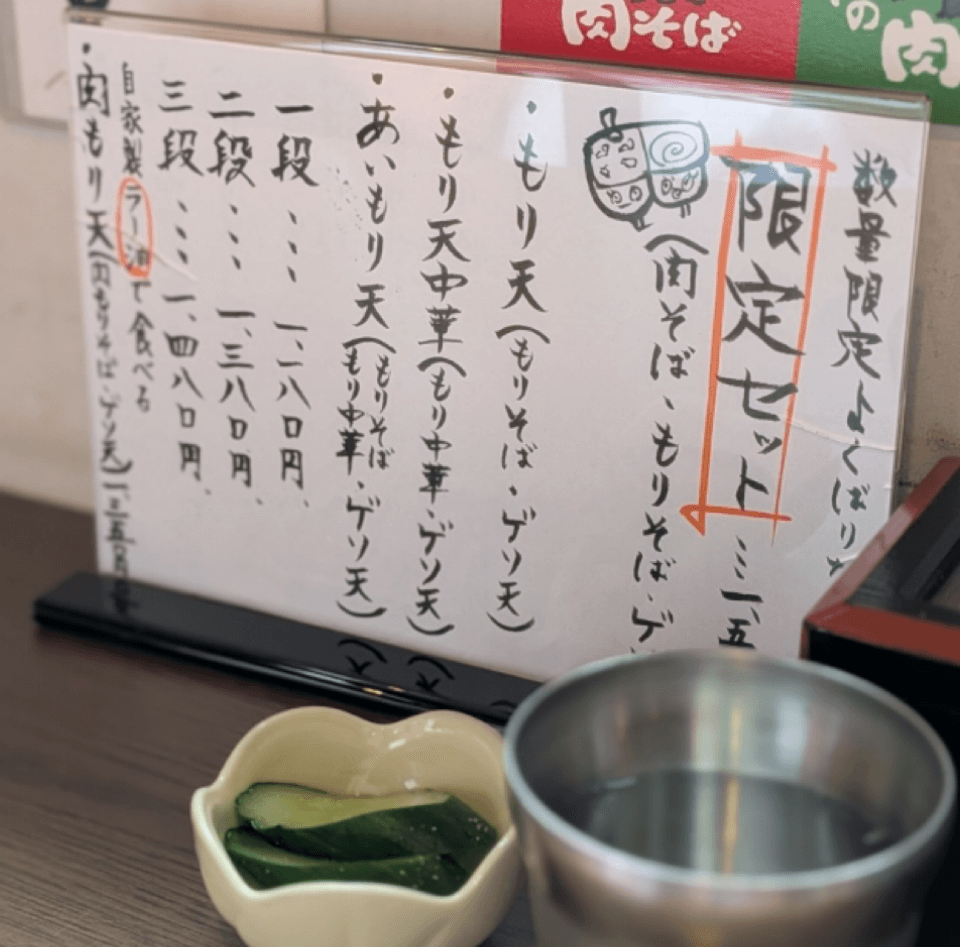 肉そば
の肉
数量限定よくばり
限定セット…一、五
(肉そば、もりそば、ゲソ
・もり天(もりそば、ゲソ天)
・もり天中華(もり中華、ゲソ天)
・あいもり天(もりそば もり中華、ゲソ天)
一段…一、二八〇円、
二段…一、三八〇円、
三段…一、四八〇円、
自家製ラー油で食べる
・肉もり天(肉もりそば、ゲソ天)